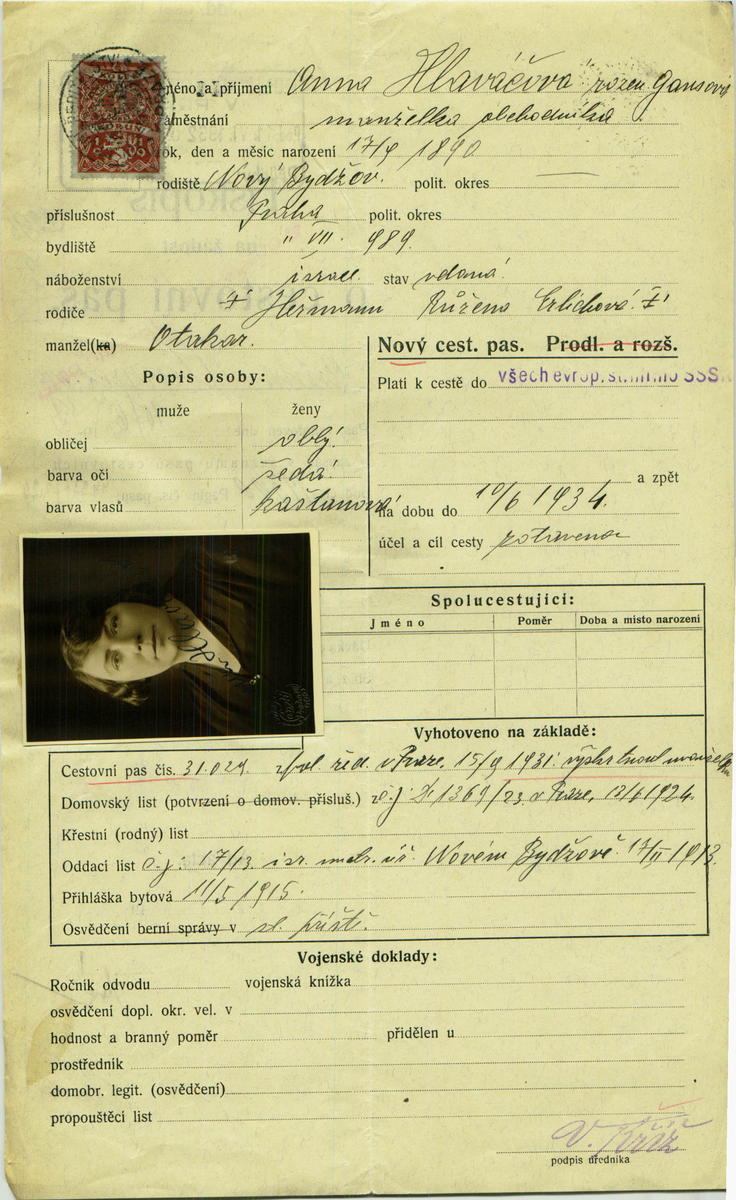 Jméno a příjmení Anna Hlaváčova rozen Gansová
zaměstnání manželka obchodníka
rok, den a měsíc narození 17/9 1890.
rodiště Nový Bydžov. polit. okres
příslušnost Praha polit. okres
bydliště " VII. 989.
náboženství israel. stav vdaná.
rodiče Heřmann Růžena Erlichová.
manžel(ka) Otakar.
Nový cest. pas. Prodl. a rozš.
Popis osoby:
Platí k cestě do všech evrop. st. mimo SSSR
muže ženy
obličej oblý.
barva očí šedá.
a zpět
barva vlasů kaštanová
na dobu do 10/6 1934.
účel a cíl cesty zotavena
Spolucestující:
Jméno Poměr Doba a místo narození
Vyhotoveno na základě:
Cestovní pas čis. 31.029 pol. řed. v Praze, 15/9 1931.
Domovský list (potvrzení o domov. přísluš.) č.j. 1369/23 v Praze, 12/6 1924.
Křestní (rodný) list
Oddací list č.j. 17/13 isr. matr. úř. Novém Bydžově 17/II 1913.
Přihláška bytová 11/5 1915.
Osvědčení berní správy v sl. příště.
Vojenské doklady:
Ročník odvodu vojenská knížka
osvědčení dopl. okr. vel. v
hodnost a branný poměr přidělen u
prostředník
domobr. legit. (osvědčení)
propouštěcí list
V. Kříž
podpis úředníka